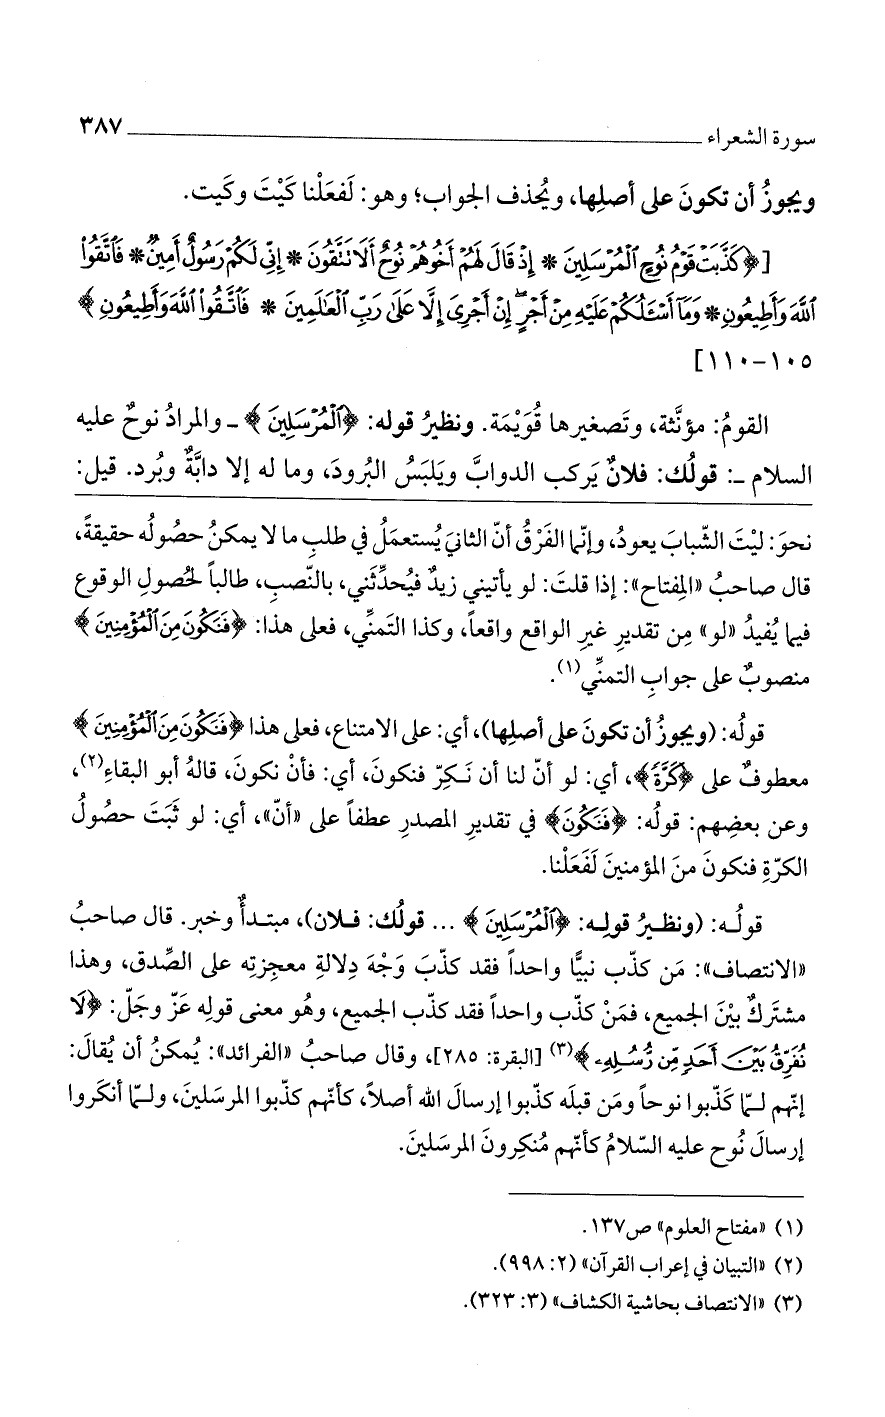 سورة الشعراء ٣٨٧
ويجوزُ أن تكونَ على أصلِها، ويُحذف الجواب؛ وهو: لَفعَلْنا كَيْتَ وكَيت.
[﴿كَذَّبَتْ قَوْمُ نُوحٍ ٱلْمُرْسَلِينَ * إِذْ قَالَ لَهُمْ أَخُوهُمْ نُوحٌ أَلَا تَتَّقُونَ * إِنِّى لَكُمْ رَسُولٌ أَمِينٌ * فَٱتَّقُوا۟
ٱللَّهَ وَأَطِيعُونِ * وَمَآ أَسْـَٔلُكُمْ عَلَيْهِ مِنْ أَجْرٍ ۖ إِنْ أَجْرِىَ إِلَّا عَلَىٰ رَبِّ ٱلْعَـٰلَمِينَ * فَٱتَّقُوا۟ ٱللَّهَ وَأَطِيعُونِ﴾
١٠٥-١١٠]
القومُ: مؤنَّثة، وتَصغيرها قُوَيْمَة. ونظيرُ قوله: ﴿ٱلْمُرْسَلِينَ﴾ ـ والمرادُ نوحٌ عليه
السلام ـ: قولُك: فلانٌ يَركب الدوابَّ ويَلبَسُ البُرودَ، وما له إلا دابَّةٌ وبُرد. قيل:
نحوَ: ليْتَ الشّبابَ يعودُ، وإنّما الفَرْقُ أنّ الثانيَ يُستعمَلُ في طلبِ ما لا يمكنُ حصُولُه حقيقةً،
قال صاحبُ «المِفتاح»: إذا قلتَ: لو يأتيني زيدٌ فيُحدِّثَني، بالنّصبِ، طالباً لحُصولِ الوقوعِ
فيما يُفيدُ «لو» مِن تقديرِ غيرِ الواقع واقعاً، وكذا التَمنِّي، فعلى هذا: ﴿فَنَكُونَ مِنَ ٱلْمُؤْمِنِينَ﴾
منصوبٌ على جوابِ التمنِّي(١).
قولُه: (ويجوزُ أن تكونَ على أصلِها)، أي: على الامتناع، فعلى هذا ﴿فَنَكُونَ مِنَ ٱلْمُؤْمِنِينَ﴾
معطوفٌ على ﴿كَرَّةً﴾، أي: لو أنّ لنا أن نَكِرّ فنكونَ، أي: فأنْ نكونَ، قالهُ أبو البقاءِ(٢)،
وعن بعضِهم: قولُه: ﴿فَنَكُونَ﴾ في تقديرِ المصدرِ عطفاً على «أنّ»، أي: لو ثَبَتَ حصُولُ
الكرّةِ فنكونَ منَ المؤمنينَ لَفَعَلْنا.
قولُه: (ونظيرُ قولِه: ﴿ٱلْمُرْسَلِينَ﴾ ... قولُك: فلان)، مبتدأٌ وخبر. قال صاحبُ
«الانتصاف»: مَن كذّب نبيًّا واحداً فقد كذّبَ وَجْهَ دِلالةِ معجزتِه على الصِّدق، وهذا
مشترَكٌ بيْنَ الجميع، فمَنْ كذّب واحداً فقد كذّب الجميع، وهُو معنى قولِه عَزّ وجَلّ: ﴿لَا
نُفَرِّقُ بَيْنَ أَحَدٍ مِّن رُّسُلِهِۦ﴾(٣) [البقرة: ٢٨٥]، وقال صاحبُ «الفرائد»: يُمكنُ أن يُقالَ:
إنّهم لمّا كَذّبوا نوحاً ومَن قبلَه كذّبوا إرسالَ الله أصلاً، كأنّهم كذّبوا المرسَلينَ، ولمّا أنكَروا
إرسالَ نُوح عليه السّلامُ كأنّهم مُنكِرونَ المرسَلينَ.
(١) «مفتاح العلوم» ص١٣٧.
(٢) «التبيان في إعراب القرآن» (٢: ٩٩٨).
(٣) «الانتصاف بحاشية الكشاف» (٣: ٣٢٣).